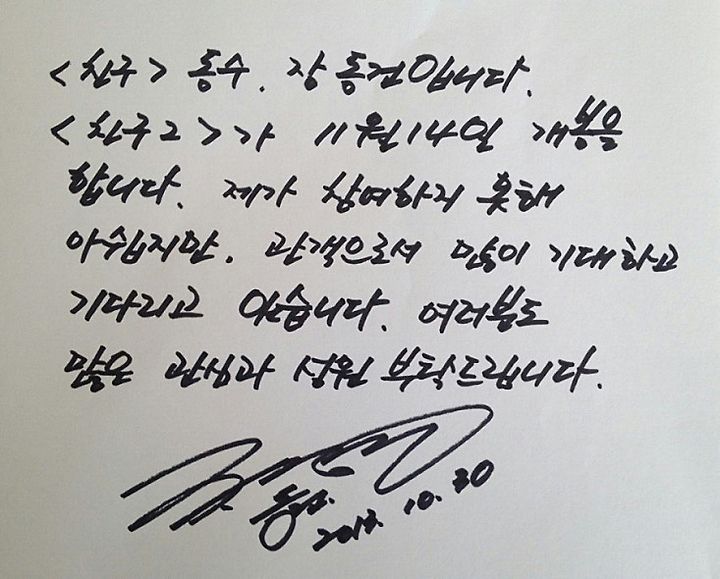 <친구> 동수. 장동건입니다.
<친구2>가 11월14일 개봉을
합니다. 제가 참여하지 못해
아쉽지만. 관객으로서 많이 기대하고
기다리고 있습니다. 여러분도
많은 관심과 성원 부탁드립니다.
2013. 10. 30